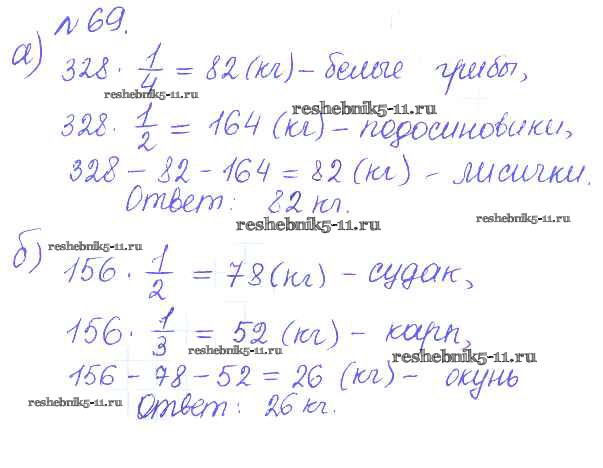 № 69.
а) 328 · 1/4 = 82 (кг) – белые грибы,
reshebnik5-11.ru
reshebnik5-11.ru
328 · 1/2 = 164 (кг) – подосиновики,
328 – 82 – 164 = 82 (кг) – лисички.
Ответ: 82 кг.
reshebnik5-11.ru
reshebnik5-11.ru
reshebnik5-11.ru
б) 156 · 1/2 = 78 (кг) – судак,
156 · 1/3 = 52 (кг) – карп,
reshebnik5-11.ru
reshebnik5-11.ru
156 – 78 – 52 = 26 (кг) – окунь
reshebnik5-11.ru
Ответ: 26 кг.